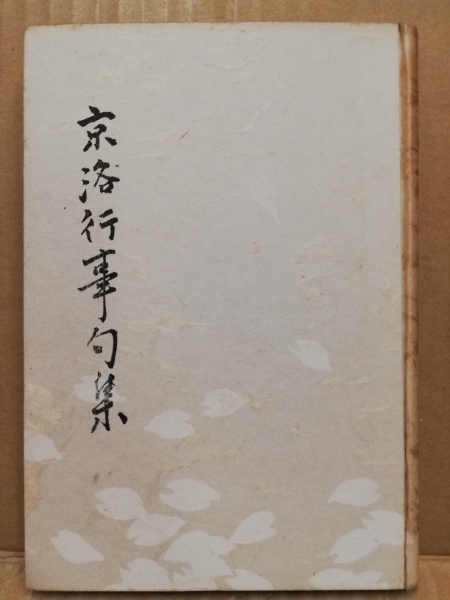 京洛行事句集